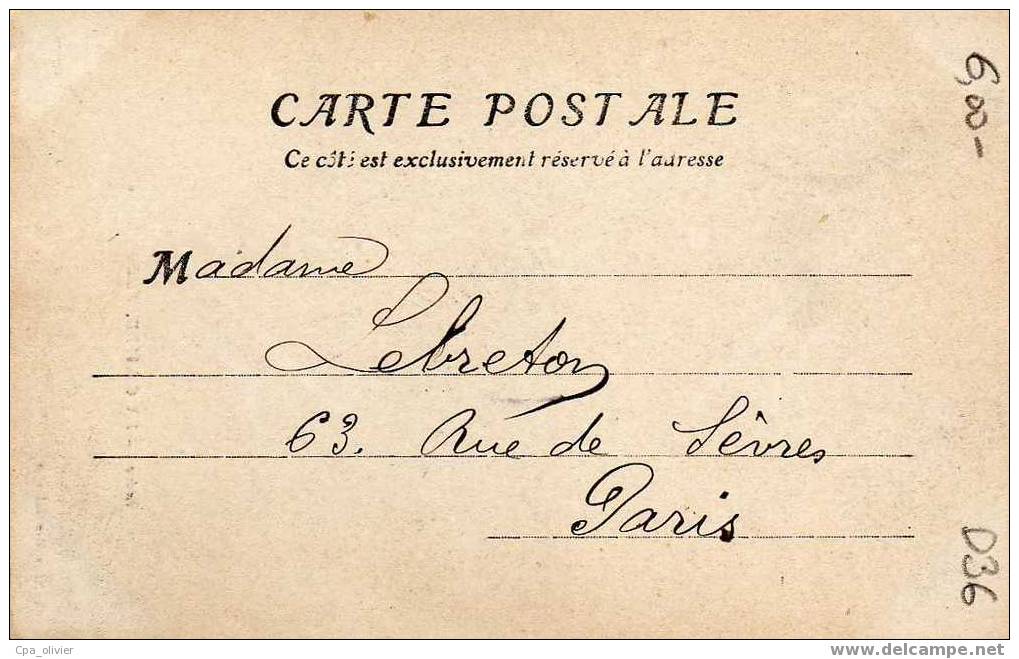 CARTE POSTALE
Ce côté est exclusivement réservé à l'adresse
6,00-
Madame
Lebreton
63. Rue de Sèvres
Paris
D36
Cpa_olivier
www.delcampe.net